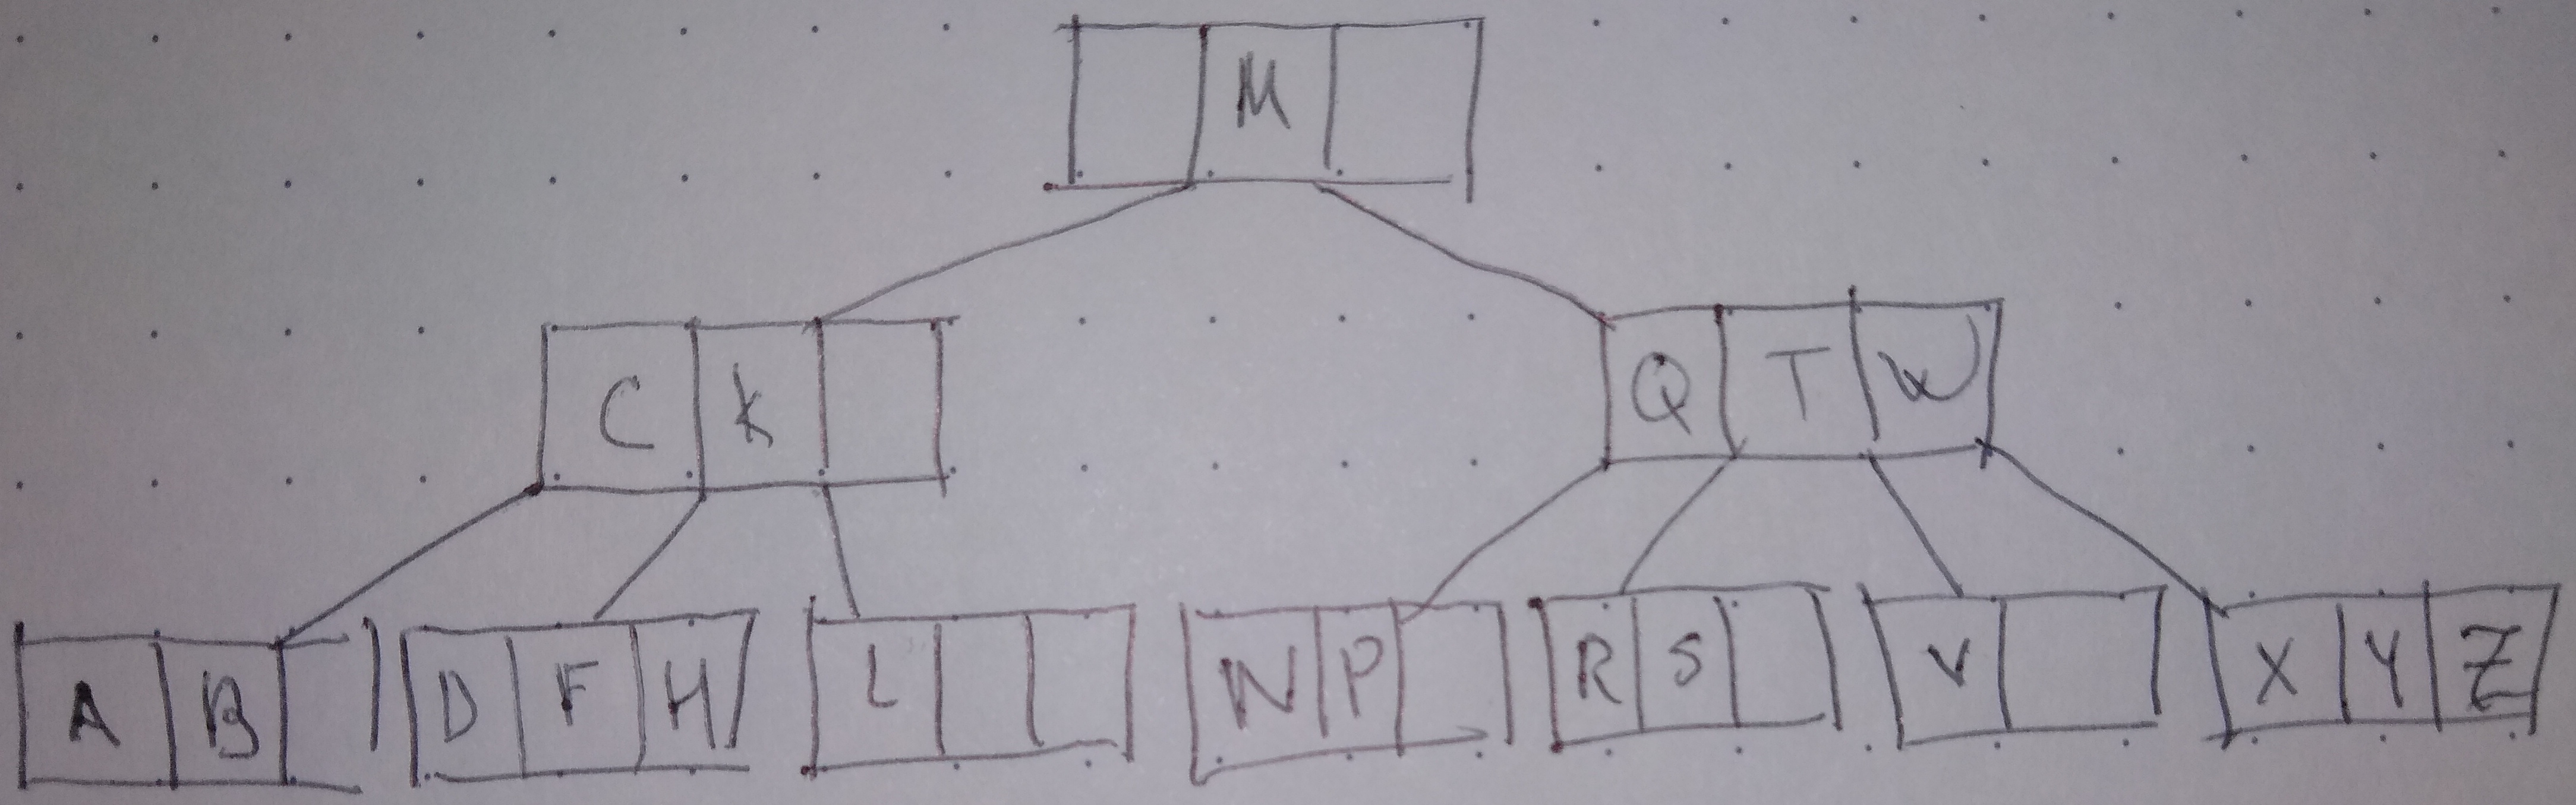 M
C K Q T W
A B D F H L N P R S V X Y Z